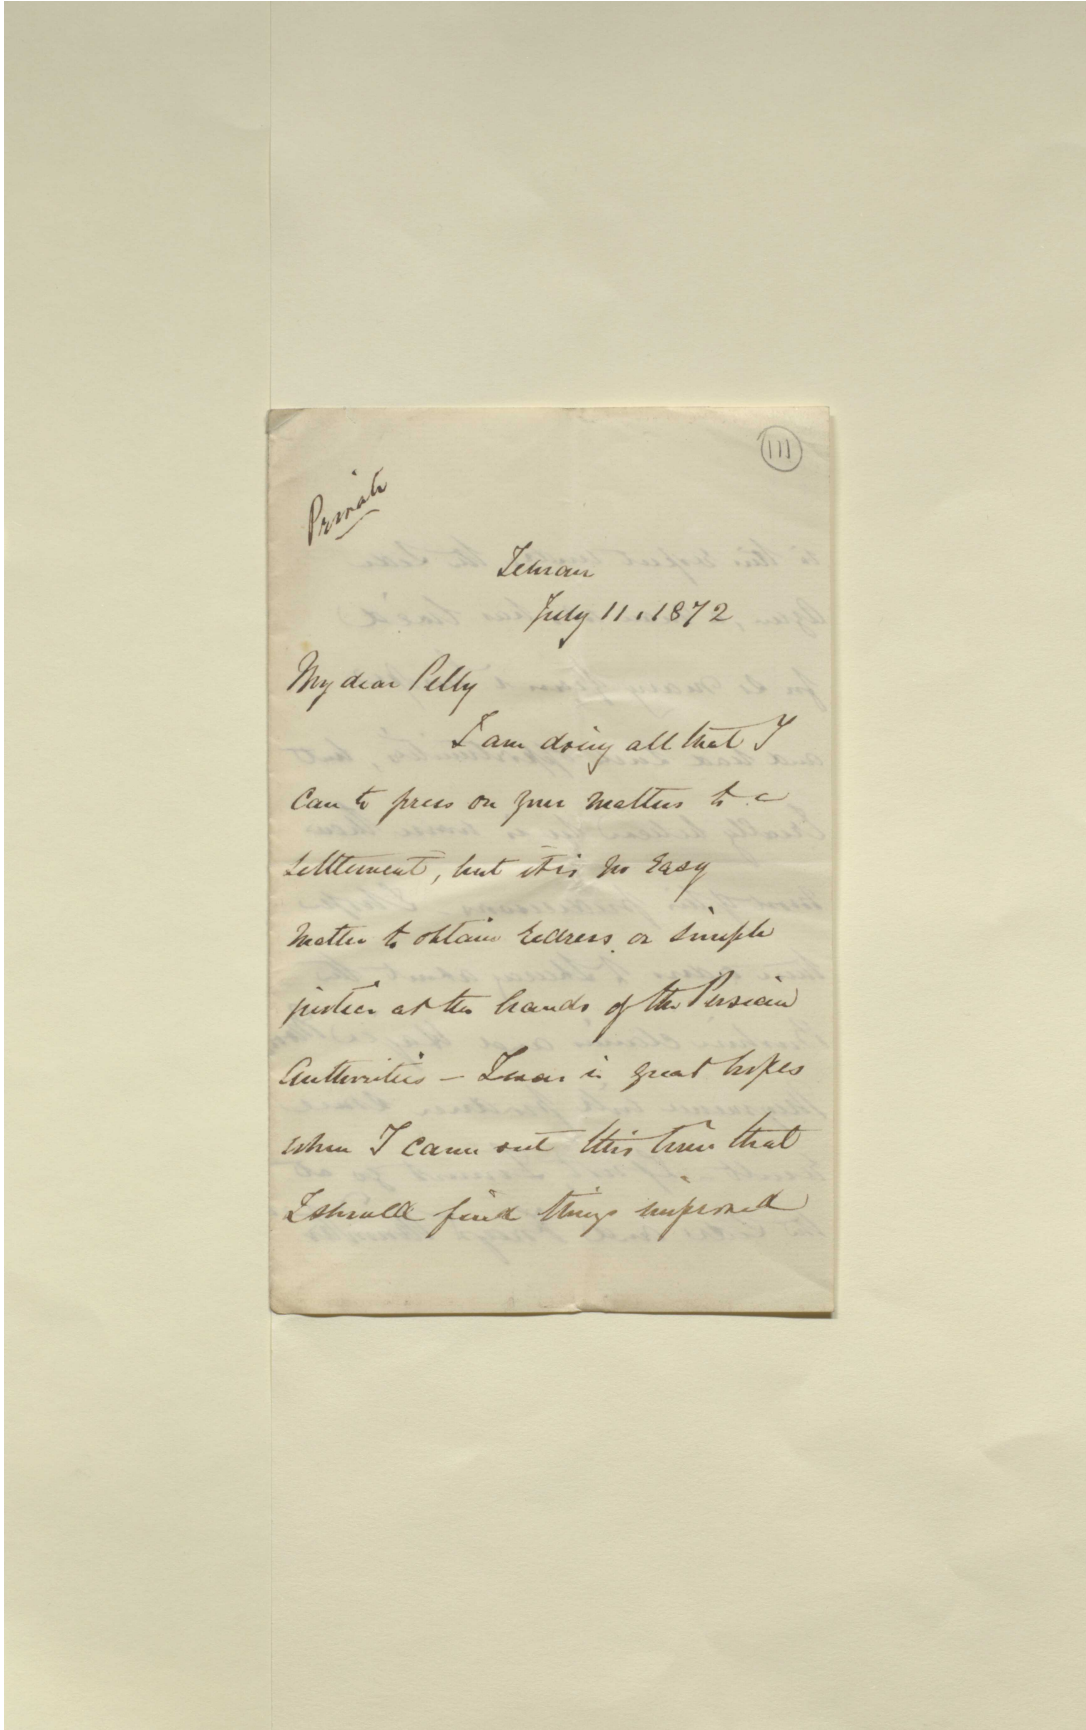 111
Private
Tehran
July 11. 1872
My dear Pelly
I am doing all that I
can to press on your matters to a
settlement, but it is no easy
matter to obtain redress or simple
justice at the hands of the Persian
Authorities – I was in great hopes
when I came out this time that
I should find things improved